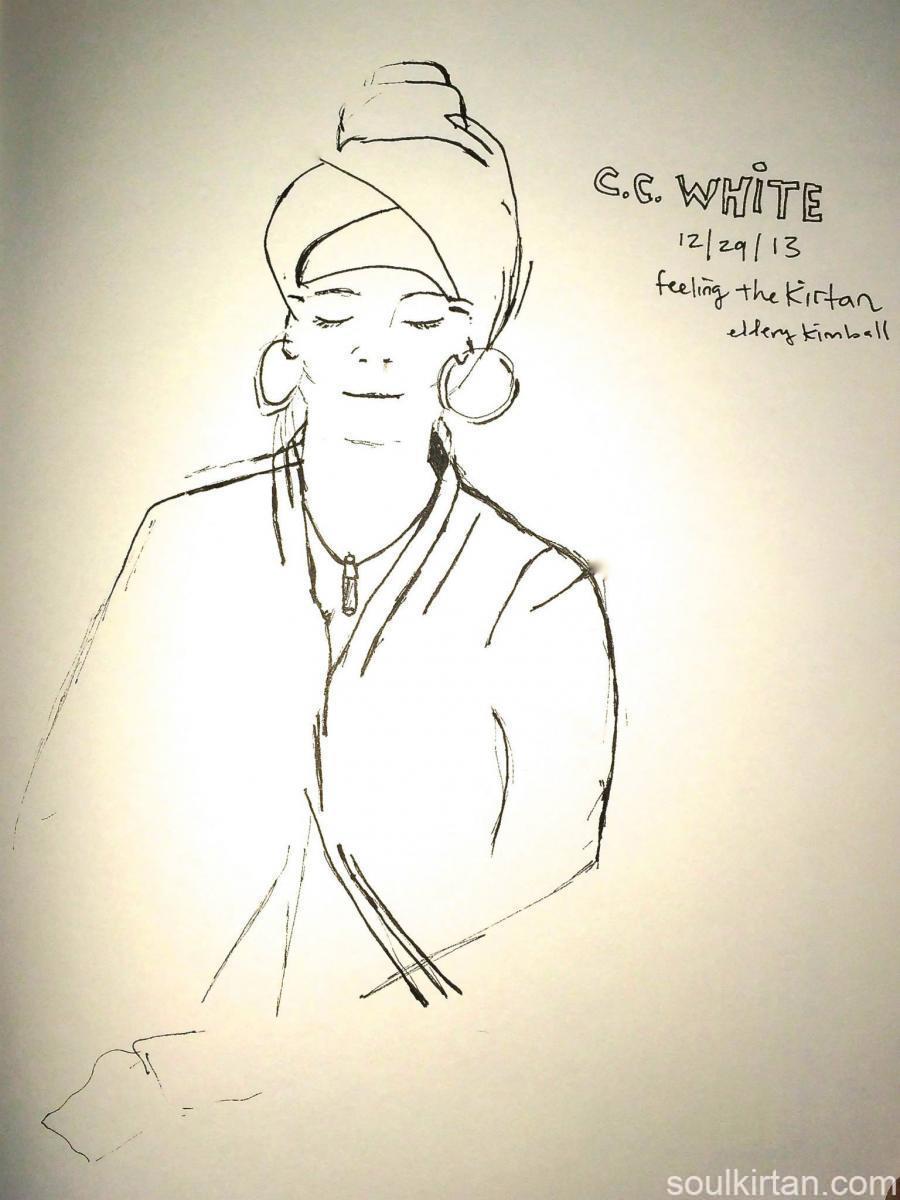 C.C. WHiTE
12/29/13
feeling the Kirtan
ellery kimball
soulkirtan.com